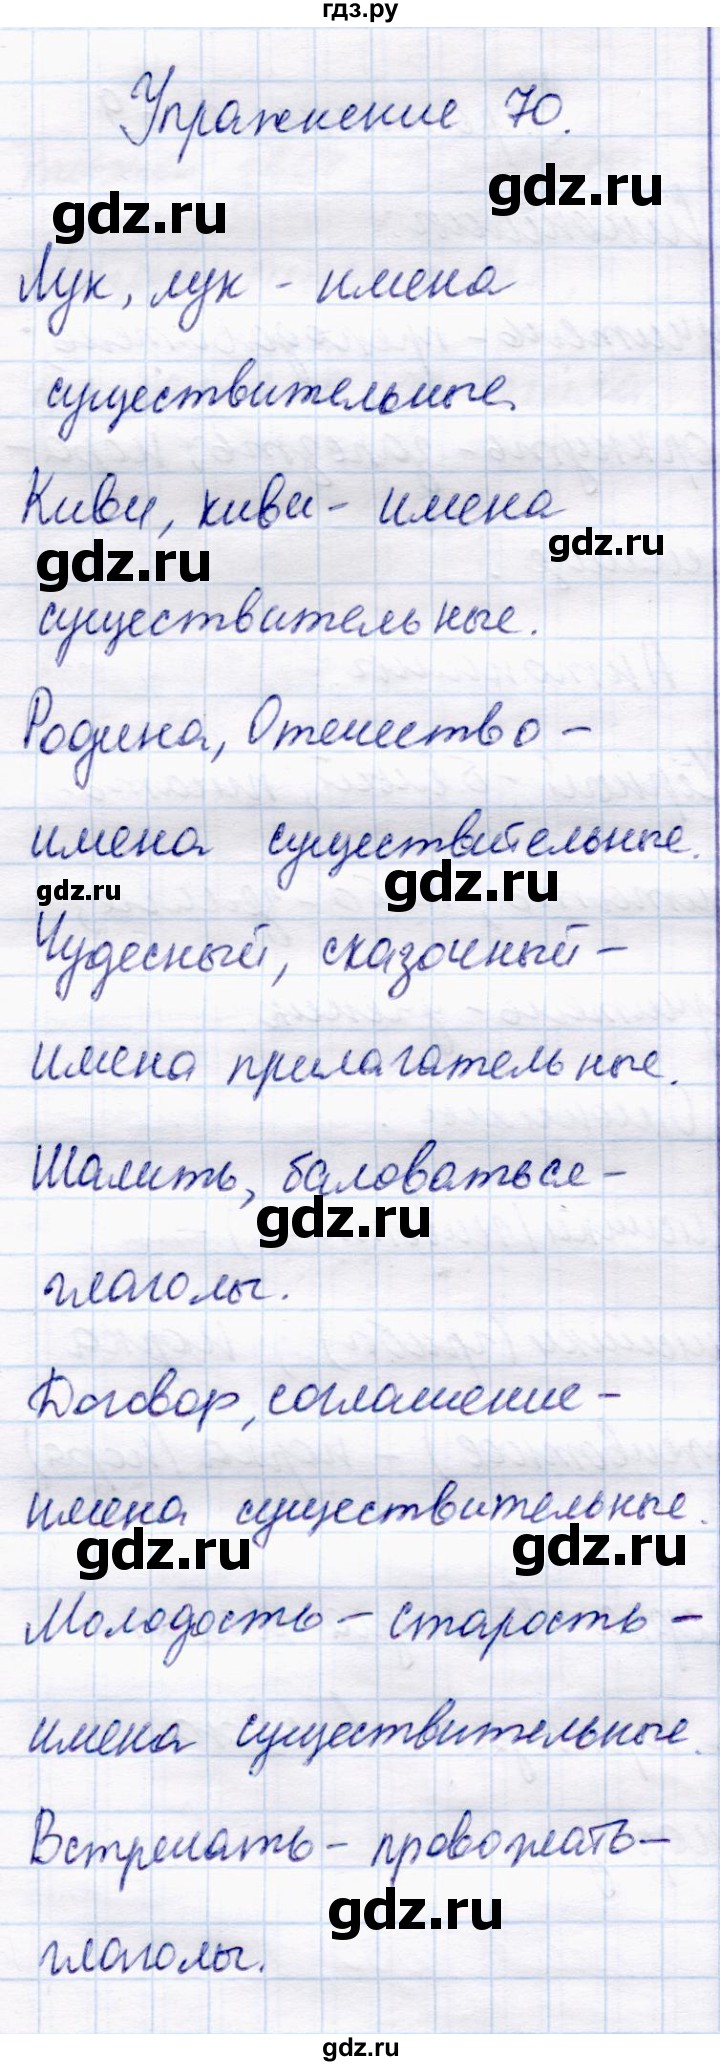 гдз.ру
Упражнение 70.
gdz.ru gdz.ru
Лук, лук - имена
существительные.
Киви, киви - имена
gdz.ru gdz.ru
существительные.
Родина, Отечество -
имена существительные.
gdz.ru gdz.ru
Чудесный, сказочный -
имена прилагательные.
Шалить, баловаться -
gdz.ru
глаголы.
Договор, соглашение -
имена существительные.
gdz.ru gdz.ru
Молодость - старость -
имена существительные.
Встречать - провожать -
gdz.ru
глаголы.
gdz.ru